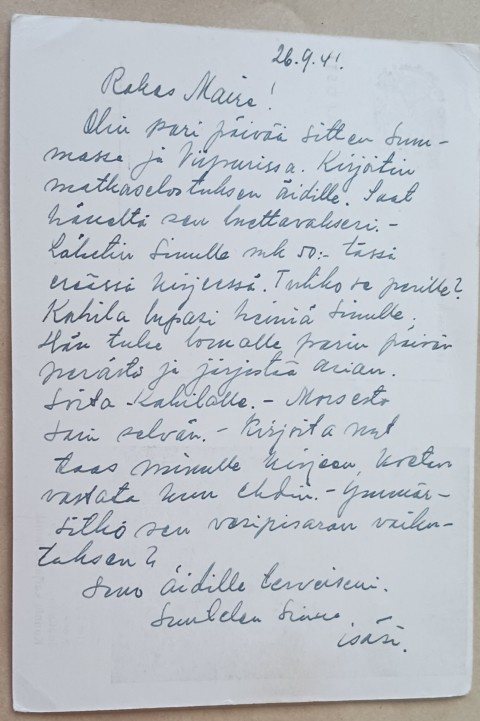 26.9.41.
Rakas Maire!
Olin pari päivää sitten Sum-
massa ja Viipurissa. Kirjoitin
matkaselostuksen äidille. Saat
häneltä sen luettavaksesi.-
Lähetin Sinulle mk 50:- tässä
eräässä kirjeessä. Tuliko se perille?
Kahila lupasi heiniä Sinulle.
Hän tulee lomalle parin päivän
perästä ja järjestää asian.
Soita Kahilalle. - Morsesta
sain selvän. - Kirjoita nyt
taas minulle kirjeen, koetan
vastata kun ehdin. - Ymmär-
sitkö sen veripisaran vaiku-
tuksen?
Sano äidille terveiseni.
Suutelen Sinua
isäsi.